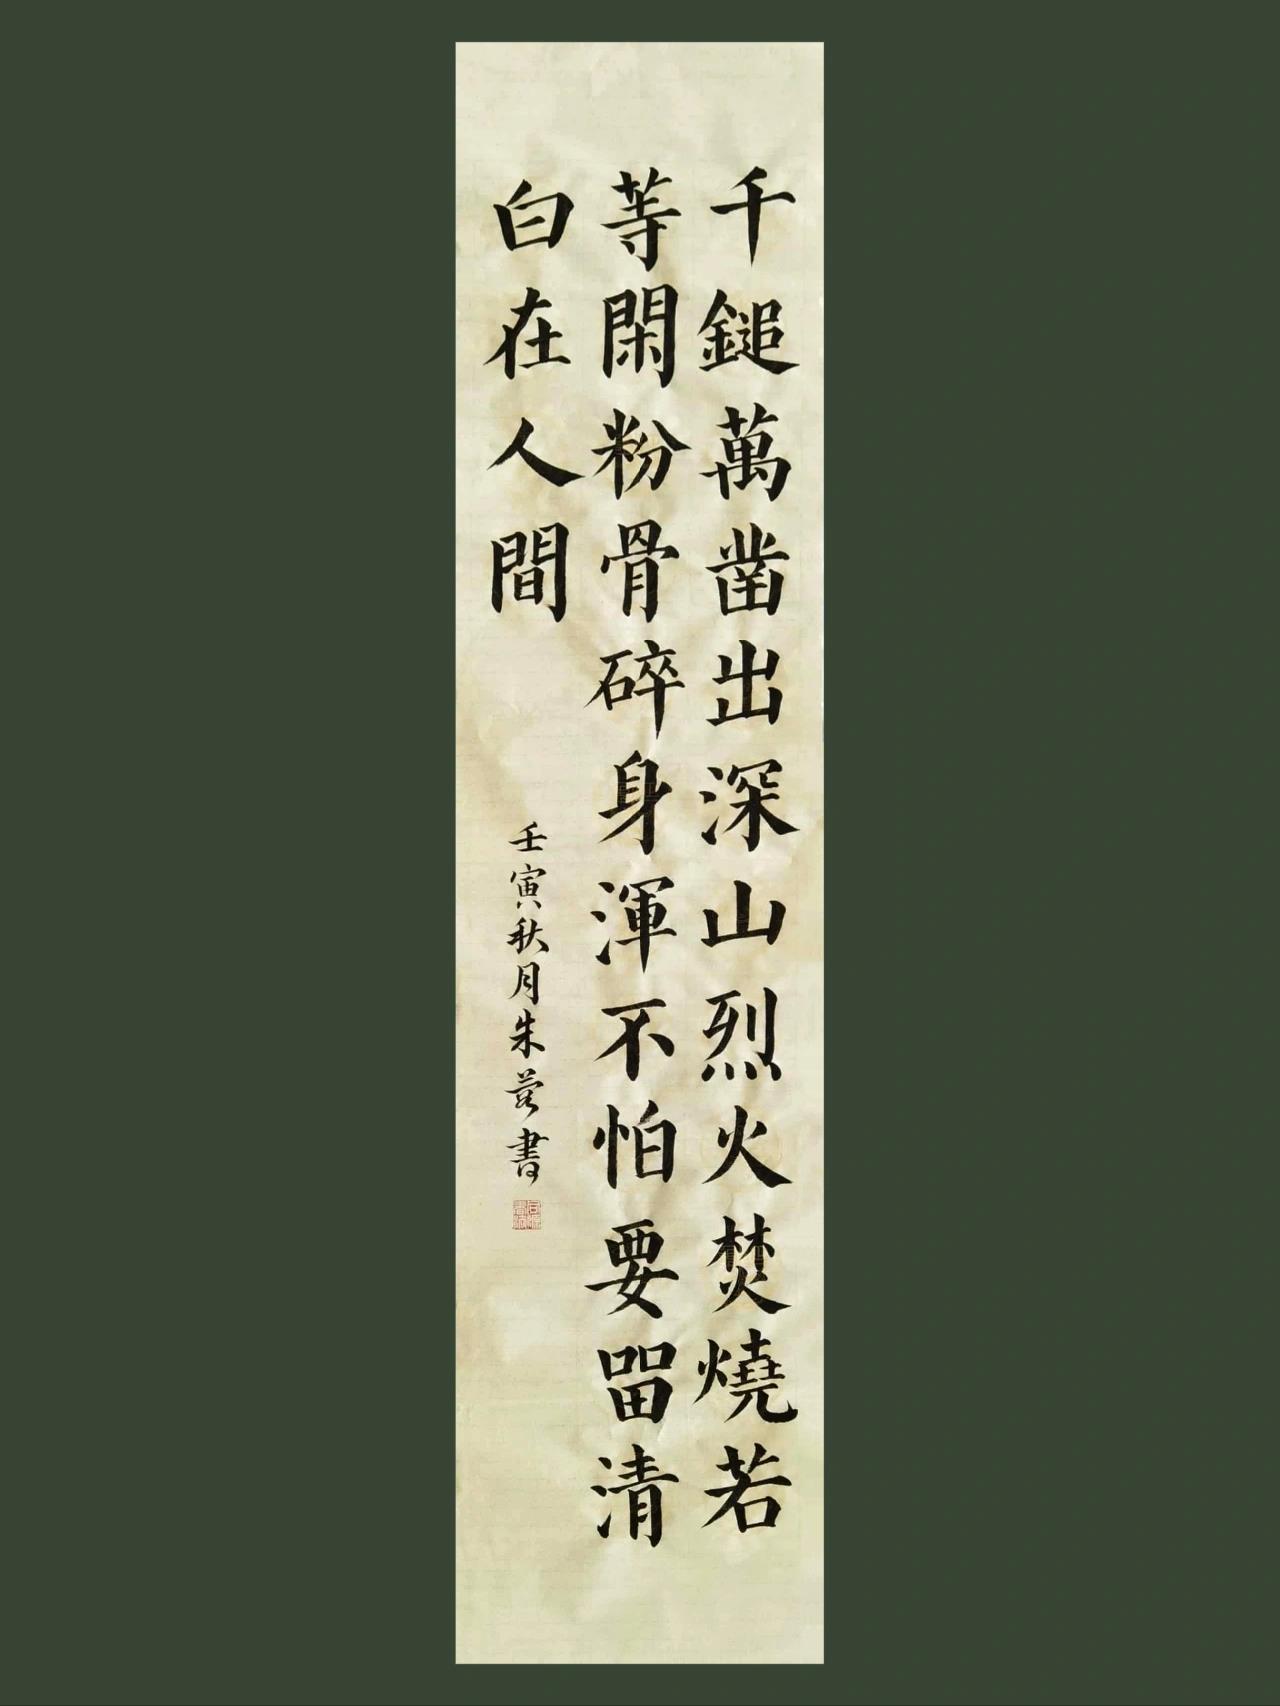 千鎚萬凿出深山烈火焚燒若
等閑粉骨碎身渾不怕要畱清
白在人間
壬寅秋月朱 書